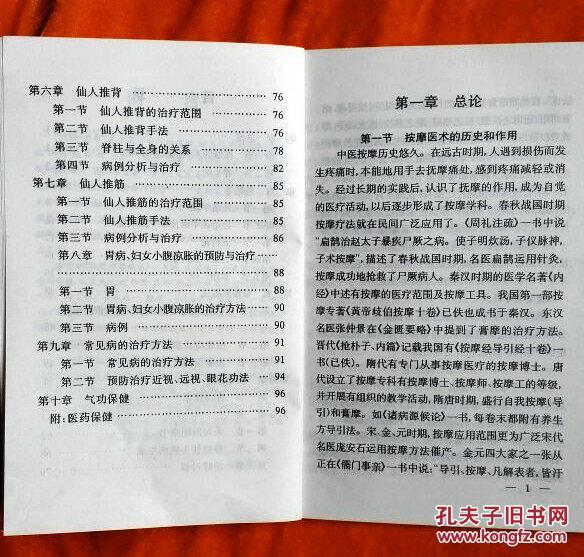 第六章　仙人推背 …………………… 76
第一节　仙人推背的治疗范围 ………… 76
第二节　仙人推背手法 ………………… 76
第三节　脊柱与全身的关系 …………… 78
第四节　病例分析与治疗 ……………… 82
第七章　仙人推筋 …………………… 85
第一节　仙人推筋的治疗范围 ………… 85
第二节　仙人推筋手法 ………………… 85
第三节　病例分析与治疗 ……………… 86
第八章　胃病、妇女小腹凉胀的预防与治疗 ……
…………………………………… 88
第一节　胃 …………………………… 88
第二节　胃病、妇女小腹凉胀的治疗方法 … 90
第三节　病例 ………………………… 90
第九章　常见病的治疗方法 …………… 91
第一节　常见病的治疗方法 …………… 91
第二节　预防治疗近视、远视、眼花功法 … 94
第十章　气功保健 …………………… 96
附:医药保健 ………………………… 96
第一章　总论
第一节　按摩医术的历史和作用
中医按摩历史悠久。在远古时期,人遇到损伤而发
生疼痛时,本能地用手去抚摩痛处,感到疼痛减轻或消
失。经过长期的实践后,认识了抚摩的作用,成为自觉
的医疗活动,以后逐步形成了按摩学科。春秋战国时期
按摩疗法就在民间广泛应用了。《周礼注疏》一书中说
“扁鹊治赵太子暴疾尸厥之病。使子明炊汤,子仪脉神,
子术按摩”,描述了春秋战国时期,名医扁鹊运用针灸,
按摩成功地抢救了尸厥病人。秦汉时期的医学名著《内
经》中述有按摩的医疗范围及按摩工具。我国第一部按
摩专著《黄帝歧伯按摩十卷》已佚也成书于秦汉。东汉
名医张仲景在《金匮要略》中提到了膏摩的治疗方法。
晋代《抢朴子、内篇》记载我国有《按摩经导引经十卷》一
书(已佚)。隋代有专门从事按摩医疗的按摩博士。唐
代设立了按摩专科有按摩博士、按摩师、按摩工的等级,
并开展有组织的教学活动,隋唐时期,盛行自我按摩(导
引)和膏摩。如《诸病源候论》一书,每卷末都附有养生
方导引法。宋、金、元时期,按摩应用范围更为广泛宋代
名医庞安石运用按摩方法催产。金元四大家之一张从
正在《儒门事亲》一书中说:“导引、按摩、凡解表者,皆汗
— 1 —
孔夫子旧书网
www.kongfz.com